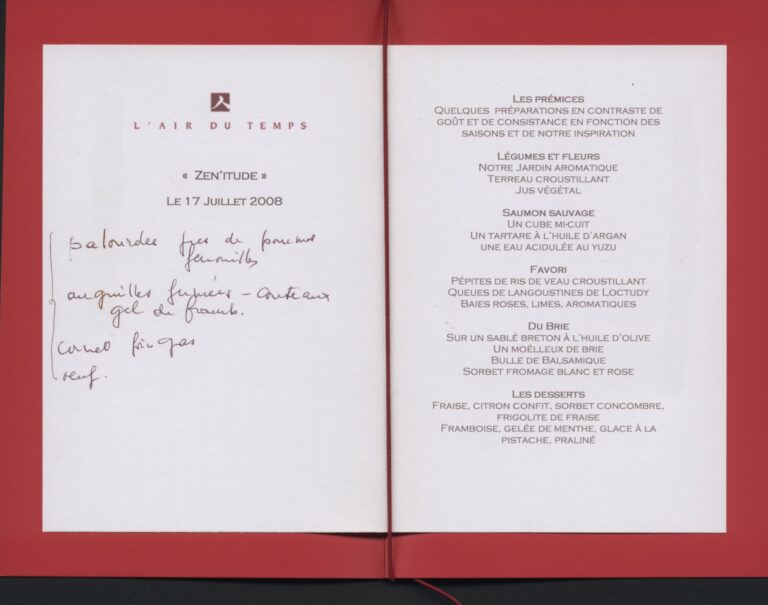 L'AIR DU TEMPS
« ZEN'ITUDE »
LE 17 JUILLET 2008
palourdes de pommes
fenouilles
anguilles fumées – couteaux
gel de framb.
cornet foie gras
oeuf.
LES PRÉMICES
QUELQUES PRÉPARATIONS EN CONTRASTE DE
GOÛT ET DE CONSISTANCE EN FONCTION DES
SAISONS ET DE NOTRE INSPIRATION
LÉGUMES ET FLEURS
NOTRE JARDIN AROMATIQUE
TERREAU CROUSTILLANT
JUS VÉGÉTAL
SAUMON SAUVAGE
UN CUBE MI-CUIT
UN TARTARE À L'HUILE D'ARGAN
UNE EAU ACIDULÉE AU YUZU
FAVORI
PÉPITES DE RIS DE VEAU CROUSTILLANT
QUEUES DE LANGOUSTINES DE LOCTUDY
BAIES ROSES, LIMES, AROMATIQUES
DU BRIE
SUR UN SABLÉ BRETON À L'HUILE D'OLIVE
UN MOËLLEUX DE BRIE
BULLE DE BALSAMIQUE
SORBET FROMAGE BLANC ET ROSE
LES DESSERTS
FRAISE, CITRON CONFIT, SORBET CONCOMBRE,
FRIGOLITE DE FRAISE
FRAMBOISE, GELÉE DE MENTHE, GLACE À LA
PISTACHE, PRALINÉ